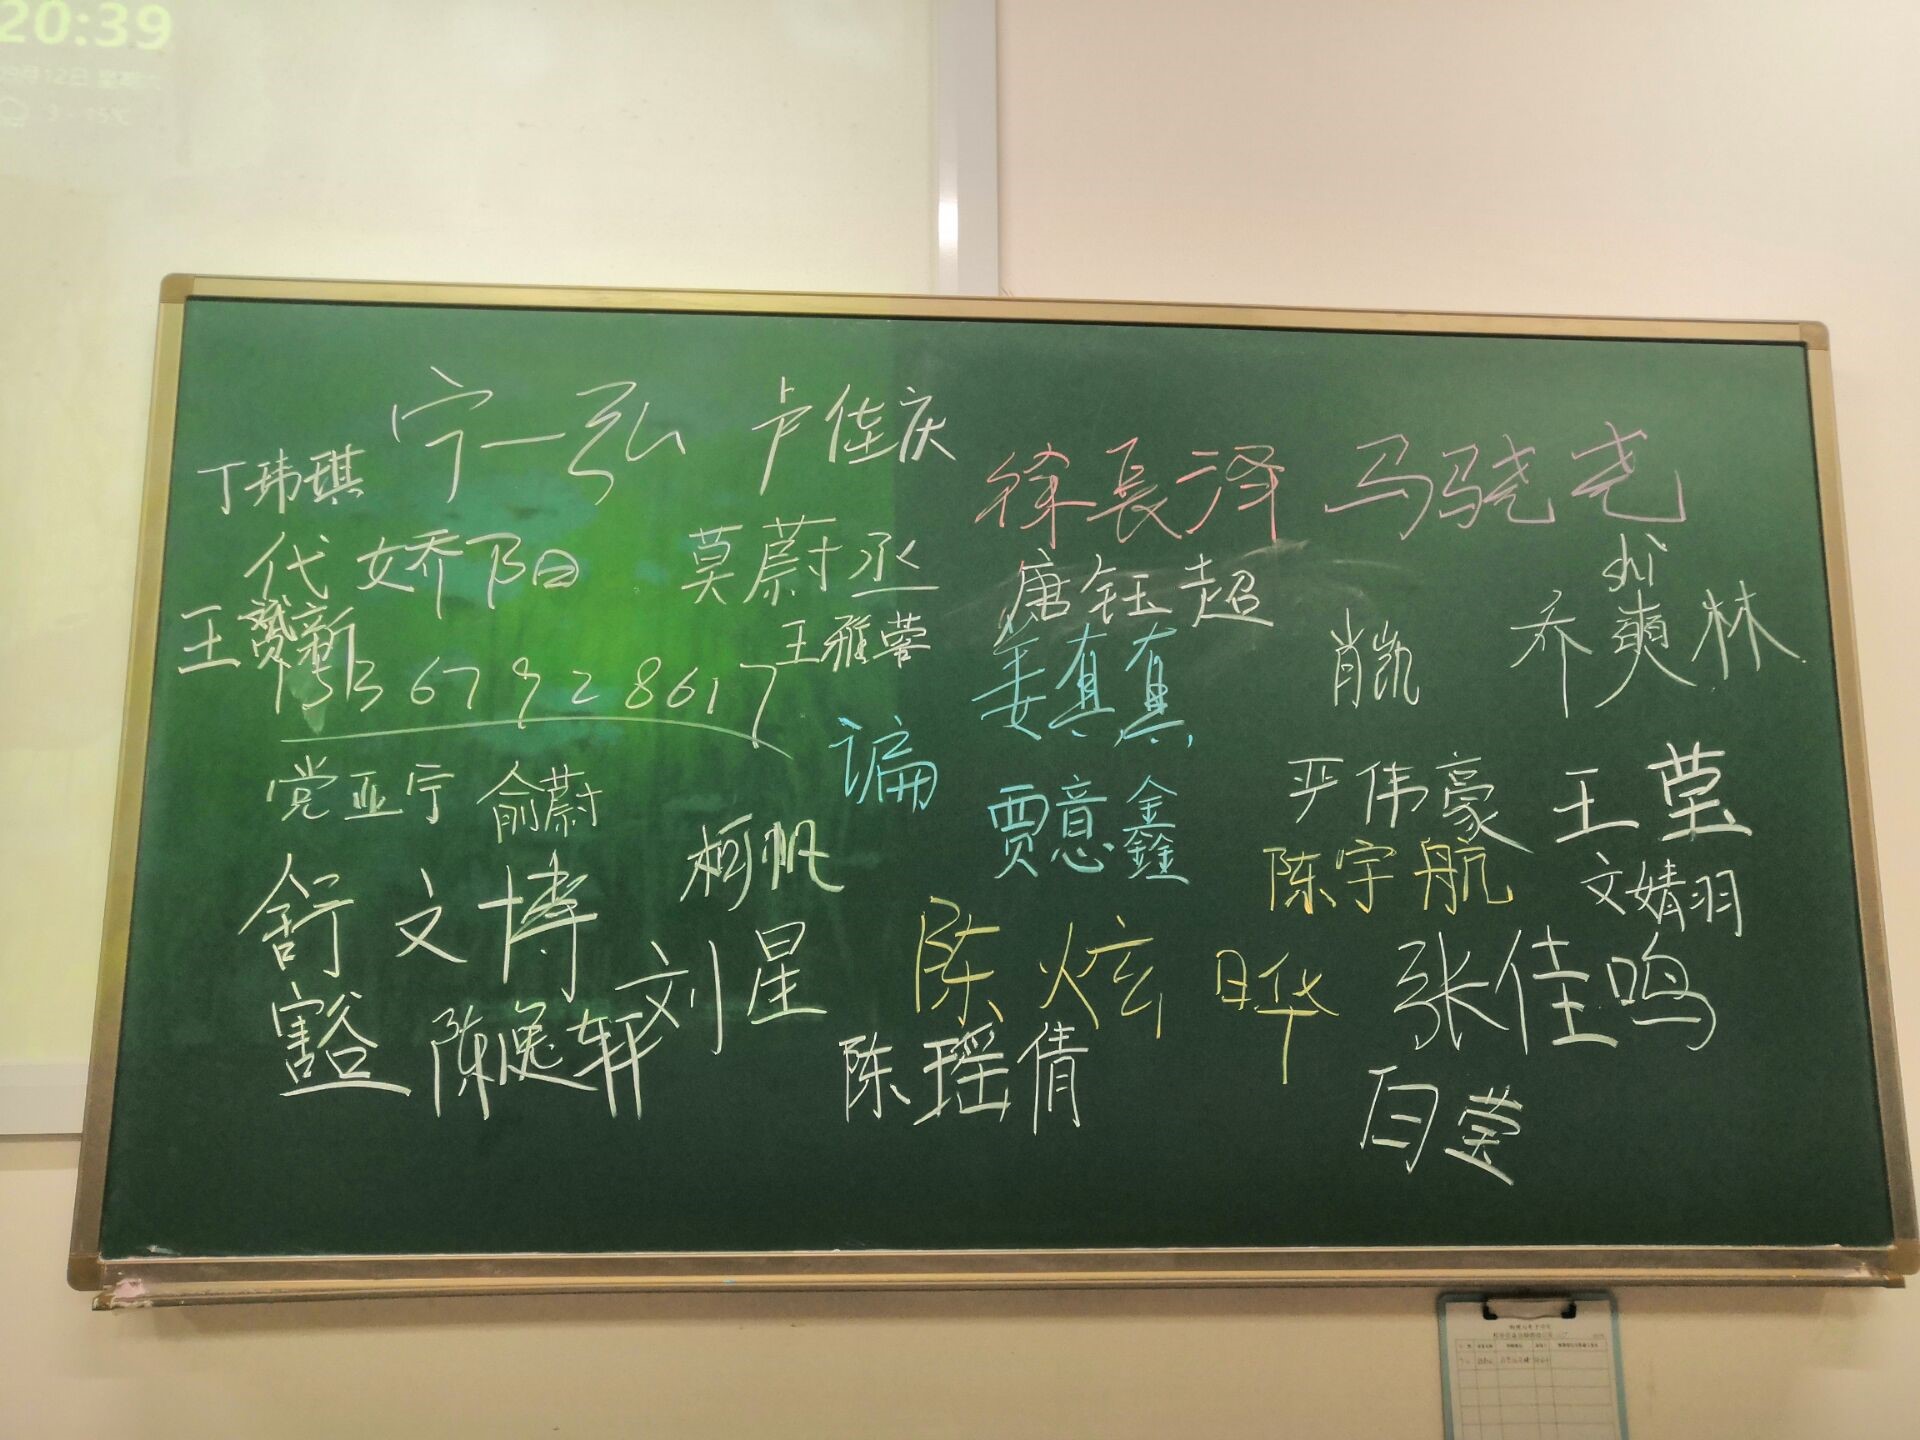 20:39
12日
宁一弘 卢佳庆
丁玮琪
徐長泽 马骁尧
代娇阳 莫蔚丞
唐钰超
王赟新 王雅蓉
15367928617
娄真真 肖凯 乔爽林
谝
党亚宁 俞蔚
贾意鑫 严伟豪 王莹
柯帆 陈宇航 文婧羽
舒文博
刘星 陈炫晔 张佳鸣
豁 陈逸轩
陈瑶倩
白莹